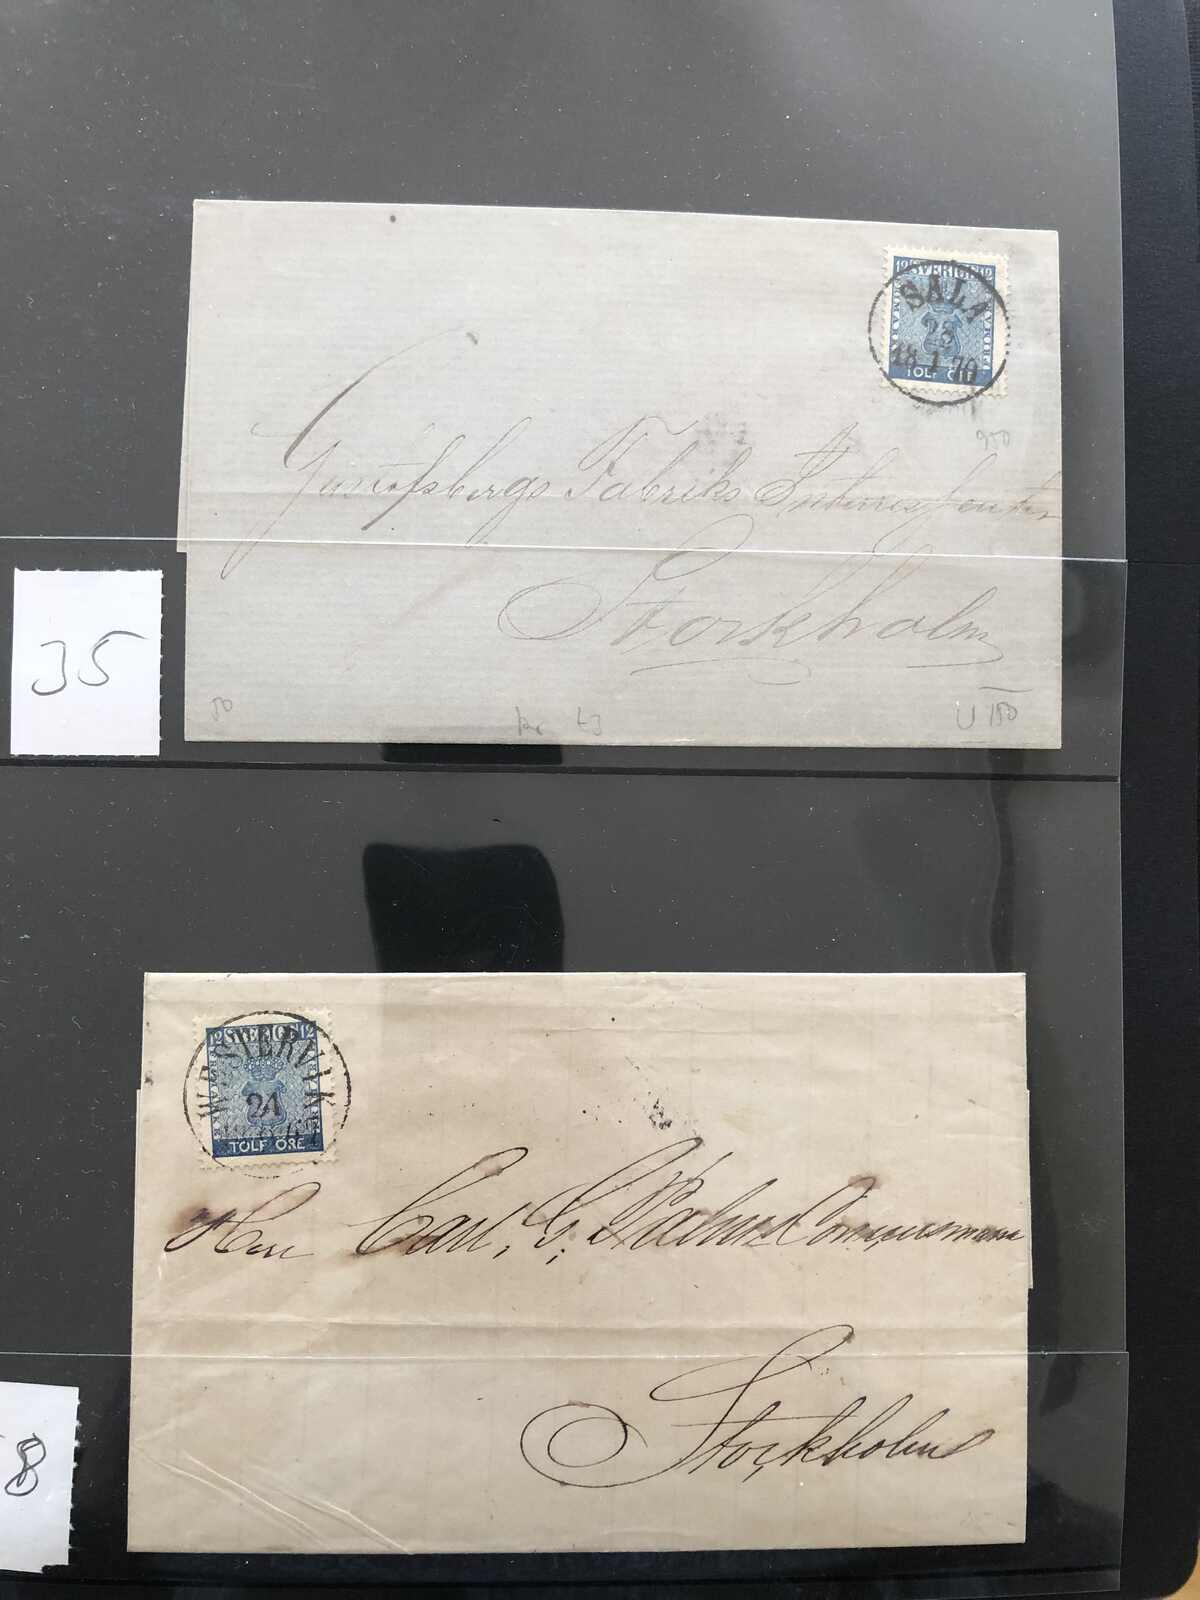 12 SVERIGE 12
SALA
28
18 1 70
TOLF ÖRE
950
Gustafsbergs Fabriks Intressenter
Stockholm
35
50
U 150
12 SVERIGE 12
WESTERVIK
21
TOLF ÖRE
Herr Carl, G,
Stockholm
8